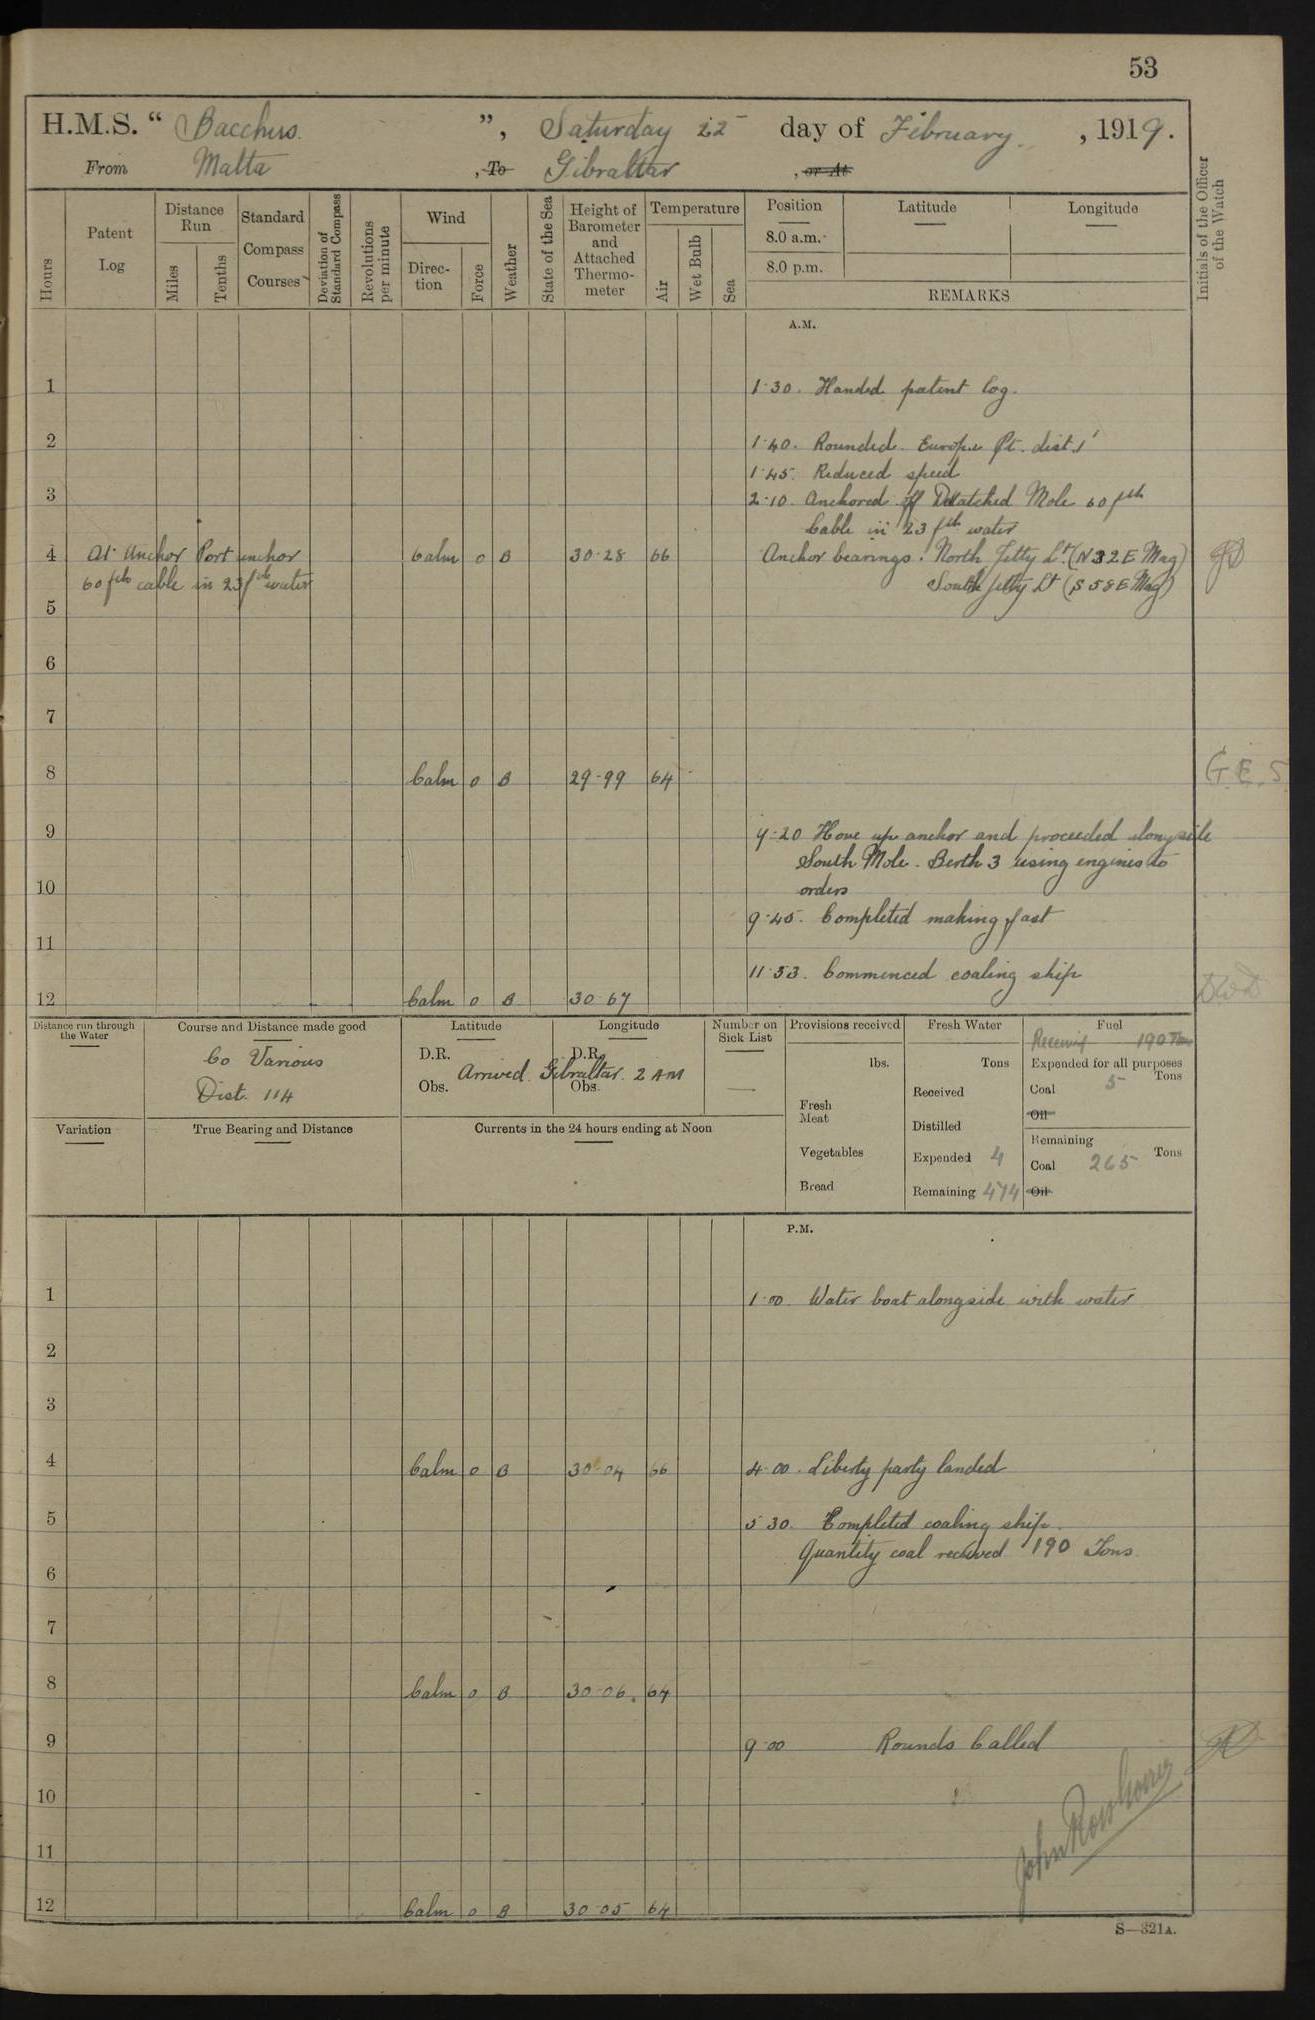 53
H.M.S. “ Bacchus ”, Saturday 22 day of February, 1919.
From Malta, To Gibraltar, or At
Hours
Patent Log
Distance Run
Miles
Tenths
Standard Compass Courses
Deviation of Standard Compass
Revolutions per minute
Wind
Direction
Force
Weather
State of the Sea
Height of Barometer and Attached Thermometer
Temperature
Air
Wet Bulb
Sea
Position
8.0 a.m.
8.0 p.m.
Latitude
Longitude
REMARKS
Initials of the Officer of the Watch
A.M.
1 1·30. Handed patent log.
2 1·40. Rounded Europe Pt. dist 1'
1·45. Reduced speed
3 2·10. Anchored off Detatched Mole 60 fth
Cable in 23 fth water
4 At Anchor Port anchor Calm 0 B 30·28 66 Anchor bearings. North Jetty Lt. (N 32 E Mag)
60 fths cable in 23 fth water South Jetty Lt (S 58 E Mag)
5
6
7
8 Calm 0 B 29·99 64 G.E.S
9 9·20 Hove up anchor and proceeded alongside
South Mole. Berth 3 using engines to
10 orders
9·45. Completed making fast
11
11·53. Commenced coaling ship
12 Calm 0 B 30·67
Distance run through the Water
Course and Distance made good
Co Various
Dist. 114
Latitude
D.R.
Obs.
Longitude
D.R.
Obs.
Arrived Gibraltar. 2 AM
Number on Sick List
Provisions received
lbs.
Fresh Meat
Vegetables
Bread
Fresh Water
Tons
Received
Distilled
Expended 4
Remaining 474
Fuel
Receivig 190 Tons
Expended for all purposes
Tons
Coal 5
Oil
Remaining
Tons
Coal 265
Oil
Variation
True Bearing and Distance
Currents in the 24 hours ending at Noon
P.M.
1 1·00. Water boat alongside with water
2
3
4 Calm 0 B 30·04 66 4·00. Liberty party landed
5 5 30. Completed coaling ship.
Quantity coal received 190 Tons
6
7
8 Calm 0 B 30·06. 64
9 9·00 Rounds Called
10
11
12 Calm 0 B 30·05 64
S—321A.